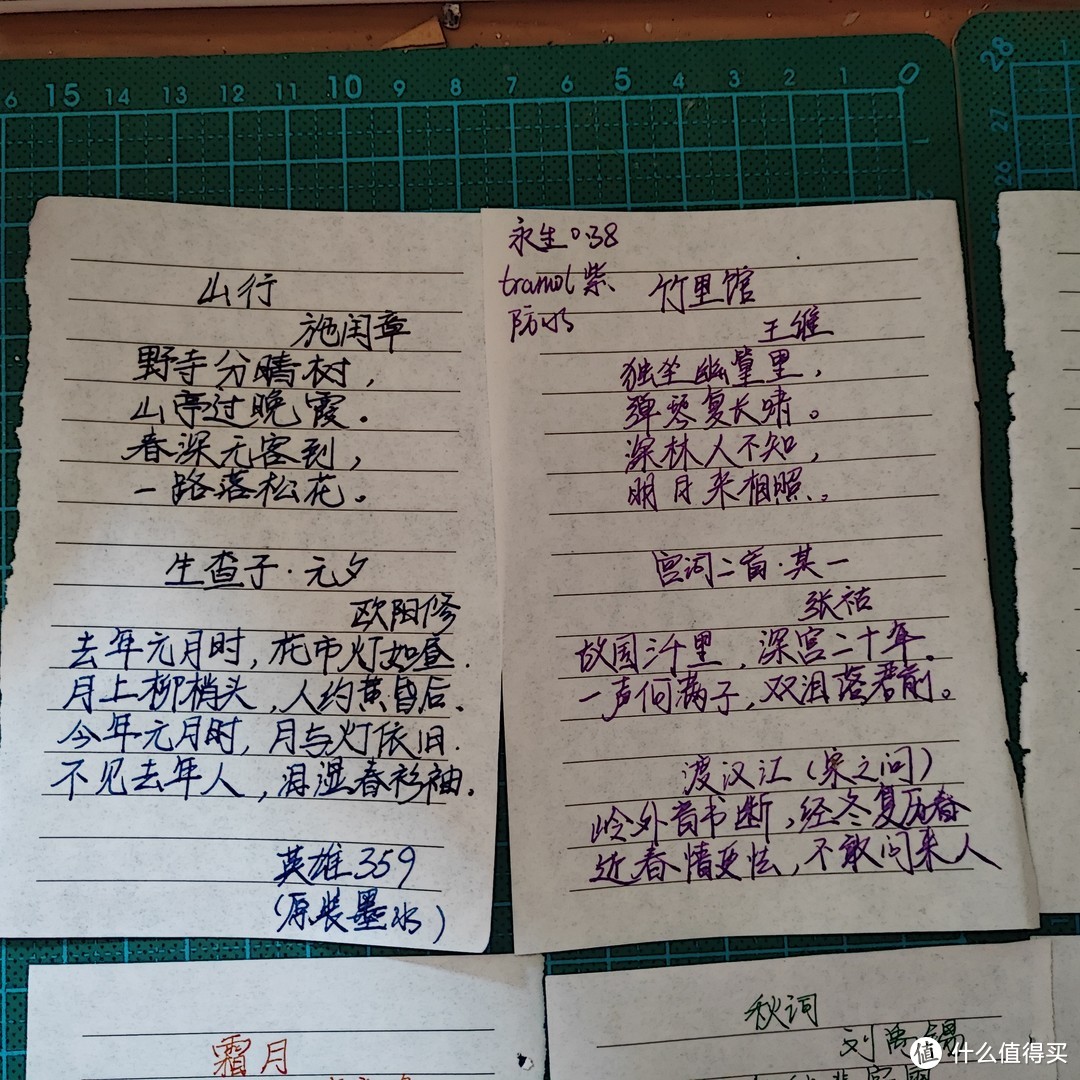 6 15 14 13 12 11 10 9 8 7 6 5 4 3 2 1 0
28
27
26
山行
施闰章
野寺分晴树，
山亭过晚霞。
春深无客到，
一路落松花。
生查子·元夕
欧阳修
去年元月时，花市灯如昼.
月上柳梢头，人约黄昏后.
今年元月时，月与灯依旧.
不见去年人，泪湿春衫袖.
英雄359
（原装墨水）
永生038
tramol紫
防水
竹里馆
王维
独坐幽篁里，
弹琴复长啸。
深林人不知，
明月来相照。
宫词二首·其一
张祜
故国三千里，深宫二十年.
一声何满子，双泪落君前。
渡汉江（宋之问）
岭外音书断，经冬复历春
近春情更怯，不敢问来人
霜月
秋词
刘禹锡
值 什么值得买